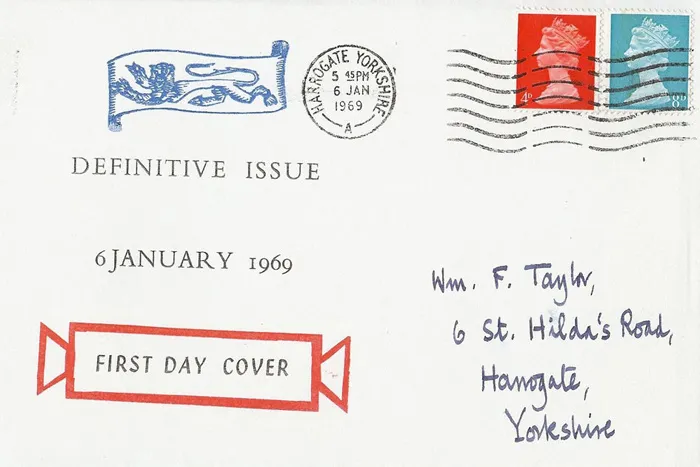 HARROGATE YORKSHIRE
5 45PM
6 JAN
1969
A
4D
8D
DEFINITIVE ISSUE
6 JANUARY 1969
FIRST DAY COVER
Wm. F. Taylor,
6 St. Hilda's Road,
Harrogate,
Yorkshire